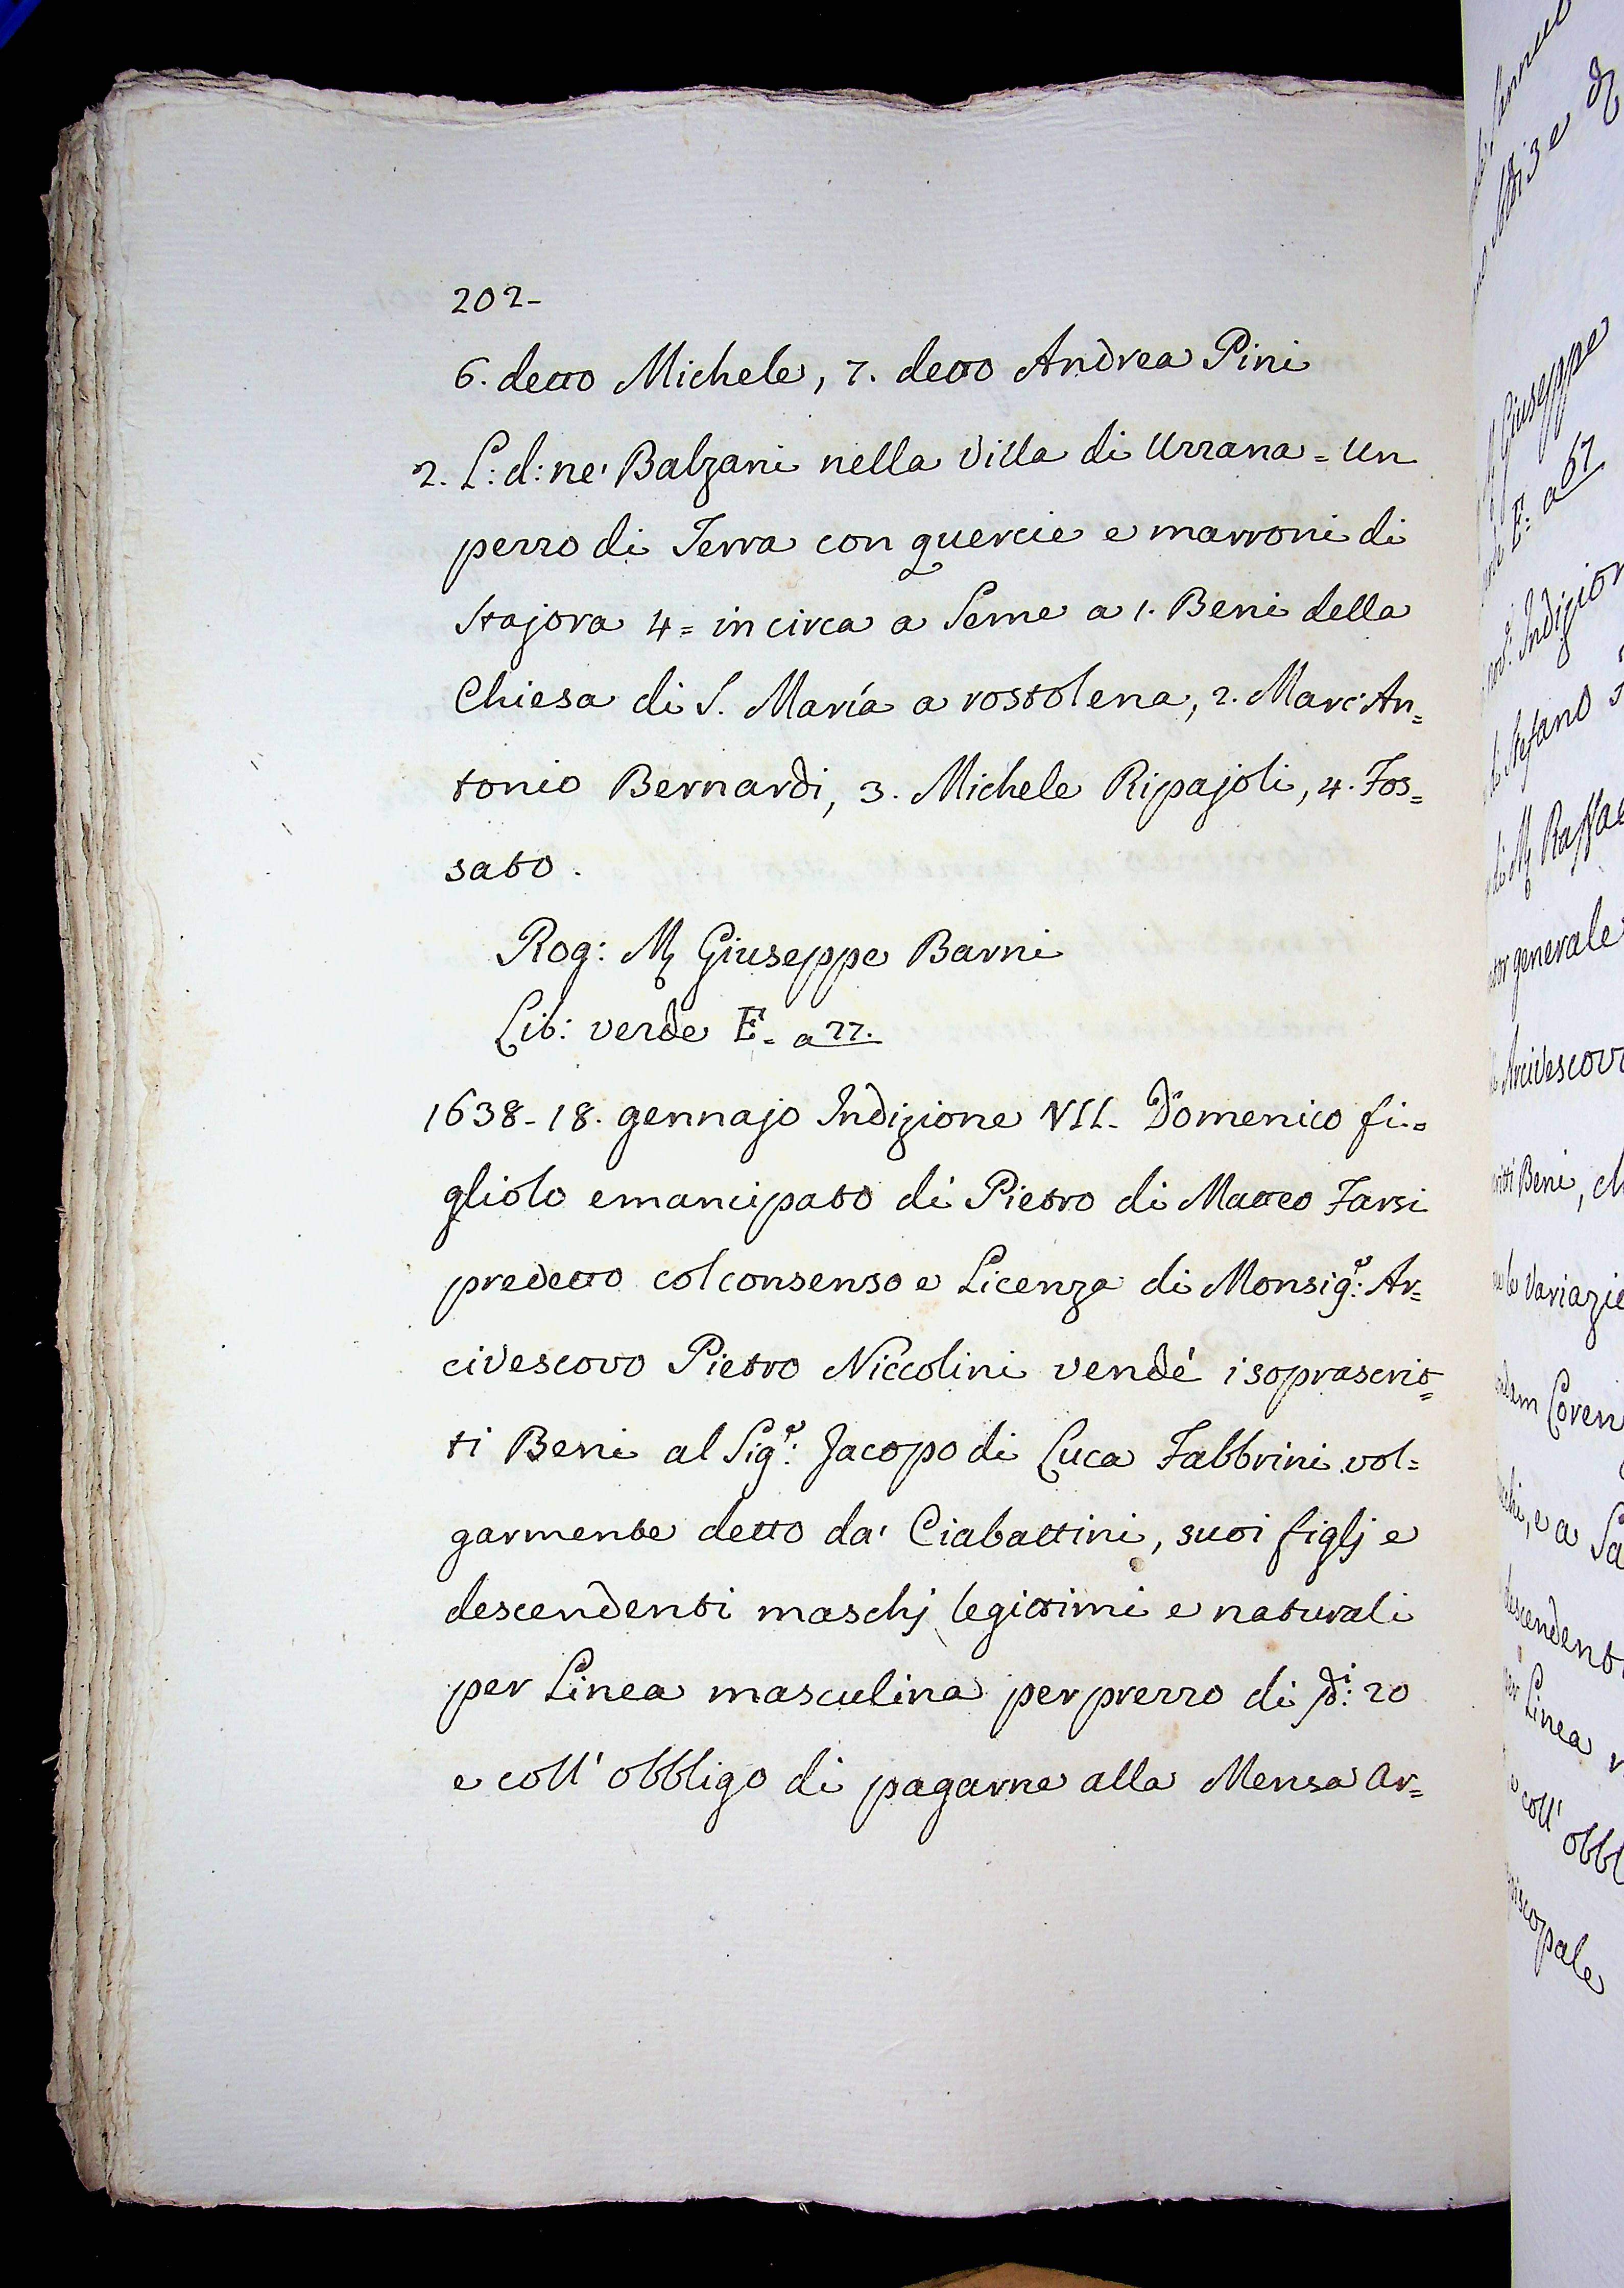 202-
6. detto Michele, 7. detto Andrea Pini
2. L: d: ne' Balzani nella Villa di Uzzana = Un
pezzo di Terra con quercie e marroni di
Stajora 4 = in circa a Seme a 1. Beni della
Chiesa di S. María a rostolena, 2. Marc'An=
tonio Bernardi, 3. Michele Ripajoli, 4. Fos=
sato.
Rog: Giuseppe Barni
Lib: verde E. a 77.
1638-18. gennajo Indizione VII. Domenico fi=
gliolo emancipato di Pietro di Matteo Farsi
predetto col consenso e Licenza di Monsig.r: Ar=
civescovo Pietro Niccolini vendé i soprascrit=
ti Beni al Sig.r: Jacopo di Luca Fabbrini vol=
garmente detto da' Ciabattini, suoi figlj e
descendenti maschj legittimi e naturali
per Linea masculina per prezzo di 20
e coll' obbligo di pagarne alla Mensa Ar=
Giuseppe
E: a 67
Indizion
Stefano
di Raffae
generale
Arcivescov
Beni, ch
Variazio
Loren
e a Sa
descendent
per Linea
coll' obbl
episcopale